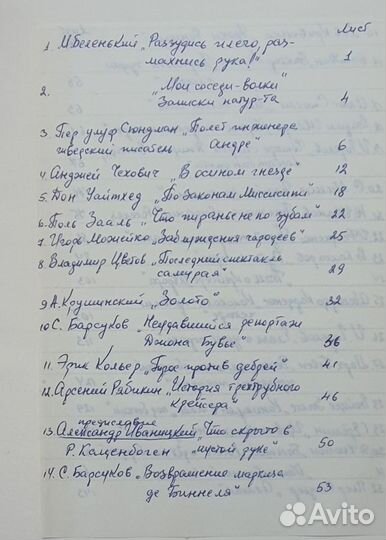 Лист
1. М. Беленький „Раззудись плечо, раз-
махнись рука!" 1
2. „Мои соседи-волки"
Записки натур-та 4
3 Пер улуф Сюндман „Полет инженера
шведский писатель Андре" 6
4 Анджей Чехович „В осином гнезде" 12
5. Дон Уайтхед „По Законам Миссисипи" 18
6. Поль Зааль „Что тиранье не по зубам" 22
7. Игорь Можейко „Заблуждения чародеев" 25
8. Владимир Цветов „Последний спектакль
самурая" 29
9 А. Крушинский „Золото" 32
10 С. Барсуков „Неудавшийся репортаж
Джона Бувье" 36
11. Эрик Кольер „Трое против дебрей" 41
12. Арсений Рябикин „История трехтрубного
крейсера" 46
предисловие
13. Александр Иваницкий „Что скрыто в
Р. Каценбоген „пустой руке" 50
14. С. Барсуков „Возвращение маркиза
де Виннеля" 53
Avito